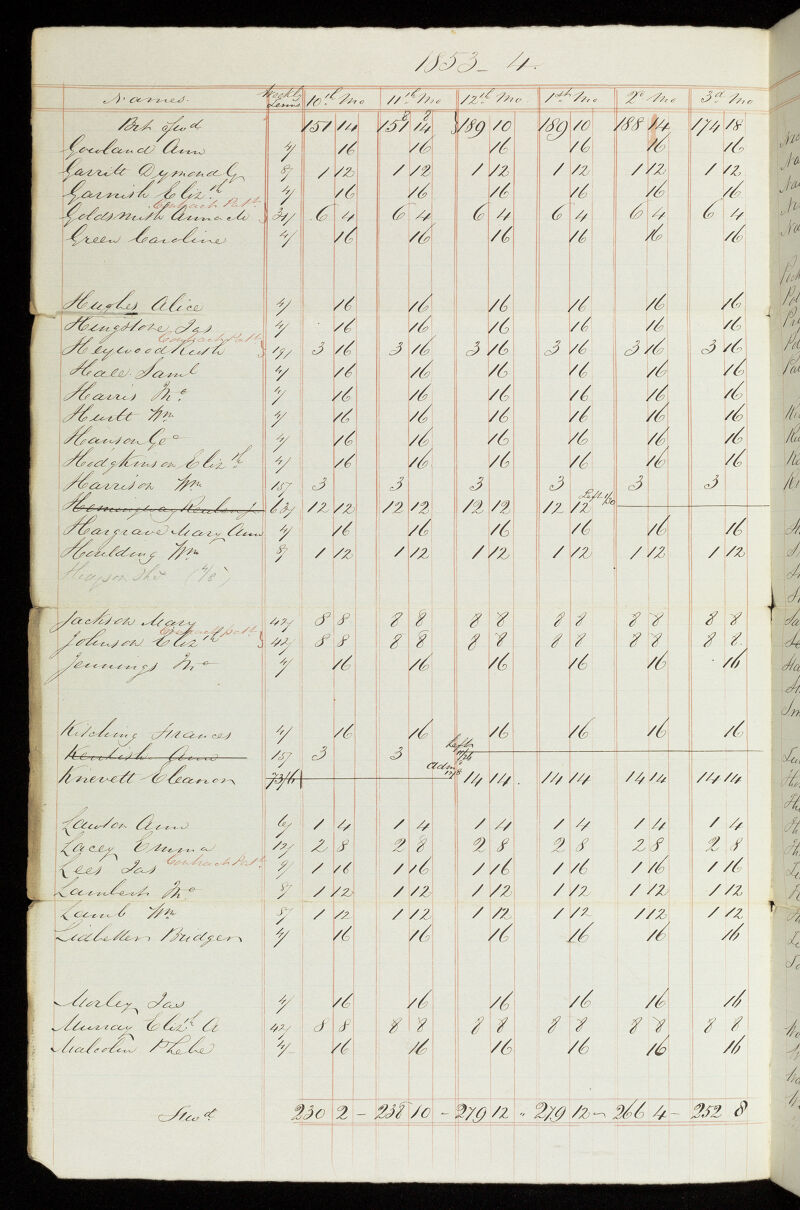 1853 - 4.
Names. Weekly Terms 10th Mo 11th Mo 12th Mo 1st Mo 2d Mo 3d Mo
Brt Fwd 151 14 158 2 189 10 189 10 188 14 174 18
Gowland Ann 4/ 16 16 16 16 16 16
Garritt Dymond G 8/ 1 12 1 12 1 12 1 12 1 12 1 12
Garnish Elizth 4/ 16 16 16 16 16 16
Contract Patt
Goldsmith Anna de 31/ 6 4 6 4 6 4 6 4 6 4 6 4
Green Caroline 4/ 16 16 16 16 16 16
Hughes Alice 4/ 16 16 16 16 16 16
Hingstone Jas 4/ 16 16 16 16 16 16
Contract Patt
Heywood Ruth 19/ 3 16 3 16 3 16 3 16 3 16 3 16
Hall Saml 4/ 16 16 16 16 16 16
Harris Jno 4/ 16 16 16 16 16 16
Hewitt Wm 4/ 16 16 16 16 16 16
Hanson Geo 4/ 16 16 16 16 16 16
Hodgkinson Elizth 4/ 16 16 16 16 16 16
Harrison Wm 15/ 3 3 3 3 3 3
Hemingway Reuben J 63/ 12 12 12 12 12 12 12 12 Left 1/20
Hargrave Mary Ann 4/ 16 16 16 16 16 16
Houlding Wm 8/ 1 12 1 12 1 12 1 12 1 12 1 12
Jackson Mary 42/ 8 8 8 8 8 8 8 8 8 8 8 8
Contract patt
Johnson Elizth 42/ 8 8 8 8 8 8 8 8 8 8 8 8
Jennings Jno 4/ 16 16 16 16 16 16
Kitching Frances 4/ 16 16 16 16 16 16
Kentish Ann 15/ 3 3 Left
Knevett Eleanor 73/6 Adm 14 14 14 14 14 14 14 14
Lawton Ann 6/ 1 4 1 4 1 4 1 4 1 4 1 4
Lacey Emma 12/ 2 8 2 8 2 8 2 8 2 8 2 8
Contract Patt
Lees Jas 9/ 1 16 1 16 1 16 1 16 1 16 1 16
Lambert Jno 8/ 1 12 1 12 1 12 1 12 1 12 1 12
Lamb Wm 8/ 1 12 1 12 1 12 1 12 1 12 1 12
Lidbetter Bridger 4/ 16 16 16 16 16 16
Morley Jas 4/ 16 16 16 16 16 16
Murray Elizth A 42/ 8 8 8 8 8 8 8 8 8 8 8 8
Malcolm Phebe 4/ 16 16 16 16 16 16
Fwd 230 2 - 238 10 - 279 12 " 279 12 - 266 4 - 252 8